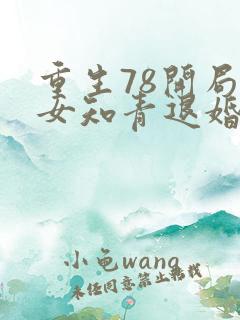 重生78開局
女知青退婚
小龟wang
未经同意禁止转载